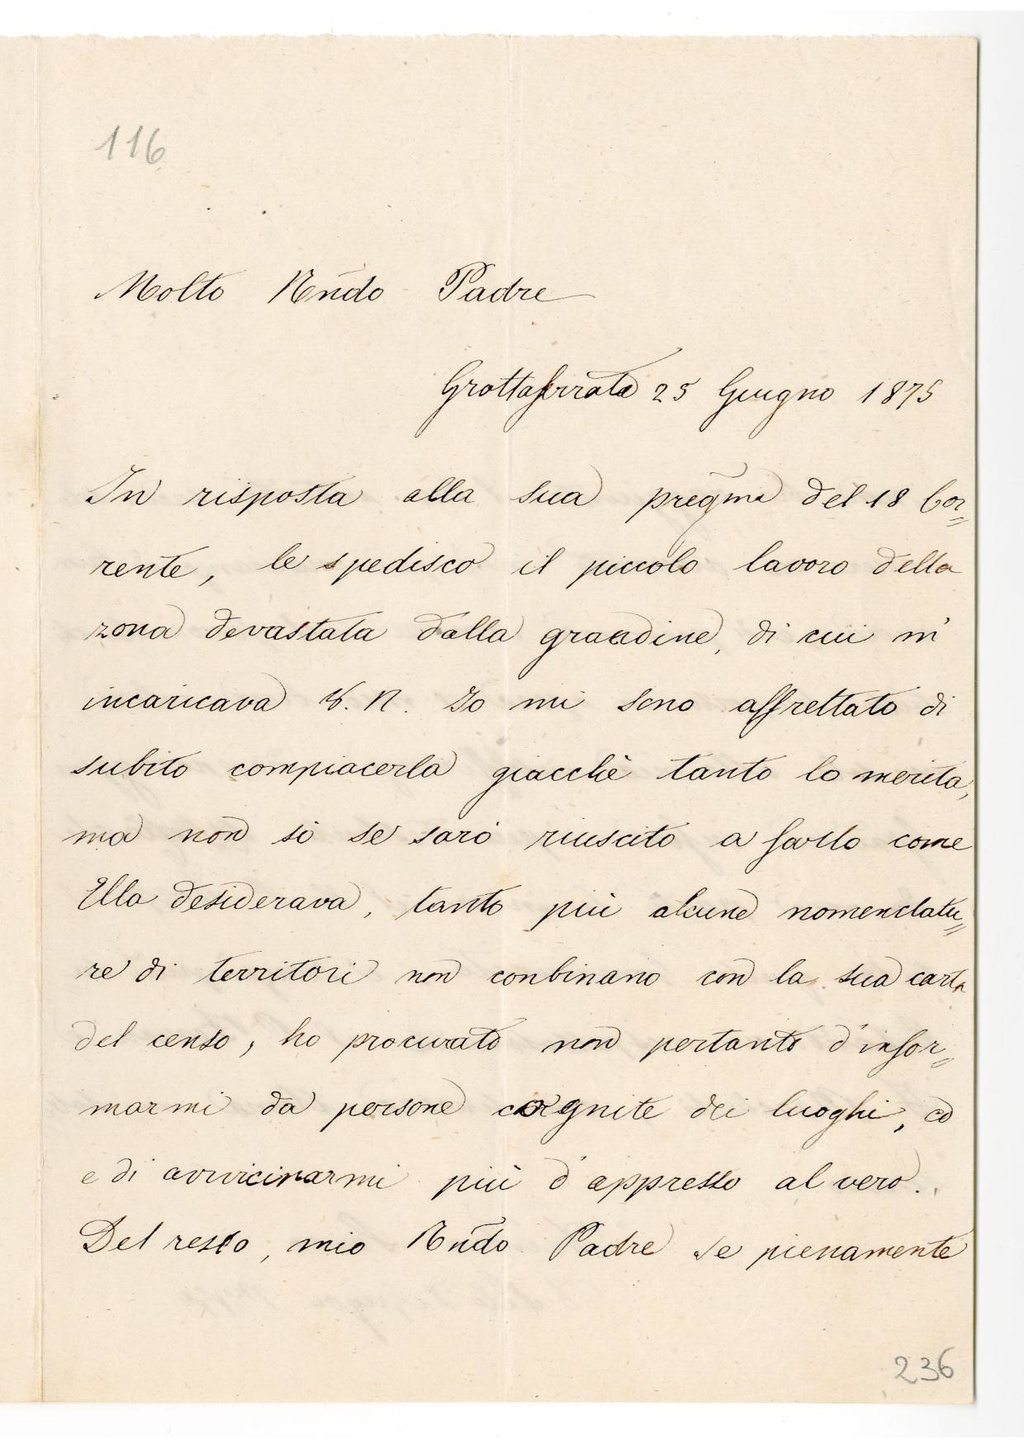 116
Molto Rñdo Padre
Grottaferrata 25 Giugno 1875
In risposta alla sua pregma del 18 Cor=
rente, le spedisco il piccolo lavoro della
zona devastata dalla grandine, di cui m'
incaricava V. R. Io mi sono affrettato di
subito compiacerla giacchè tanto lo merita,
ma non sò se sarò riuscito a farlo come
Ella desiderava, tanto più alcune nomenclatu=
re di territori non conbinano con la sua carta
del censo, ho procurato non pertanto d'infor=
marmi da persone cognite dei luoghi, ed
e di avvicinarmi più d'appresso al vero.
Del resto, mio Rñdo Padre se pienamente
236